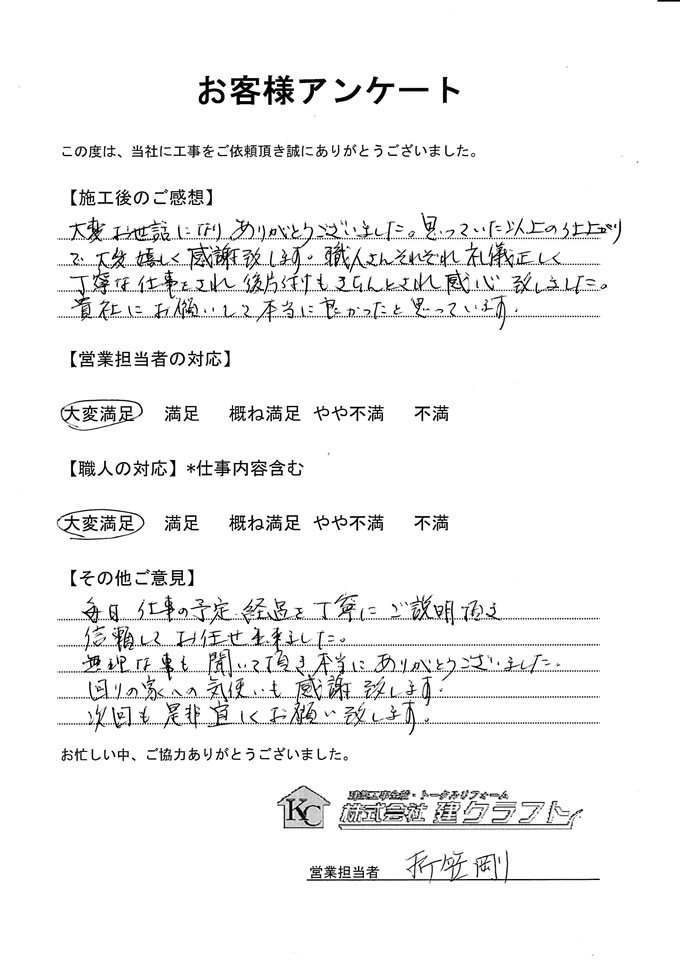 お客様アンケート
この度は、当社に工事をご依頼頂き誠にありがとうございました。
【施工後のご感想】
大変お世話になりありがとうございました。思っていた以上の仕上がり
で大変嬉しく感謝致します。職人さんそれぞれ礼儀正しく
丁寧な仕事をされ後片付けもきちんとされ感心致しました。
貴社にお願いして本当に良かったと思っています。
【営業担当者の対応】
大変満足 満足 概ね満足 やや不満 不満
【職人の対応】*仕事内容含む
大変満足 満足 概ね満足 やや不満 不満
【その他ご意見】
毎日仕事の予定、経過を丁寧にご説明頂き
信頼してお任せ出来ました。
無理な事も聞いて頂き本当にありがとうございました。
回りの家への気使いも感謝致します。
次回も是非宜しくお願い致します。
お忙しい中、ご協力ありがとうございました。
KC
建築工事全般・トータルリフォーム
株式会社 建クラフト
営業担当者 折笠剛